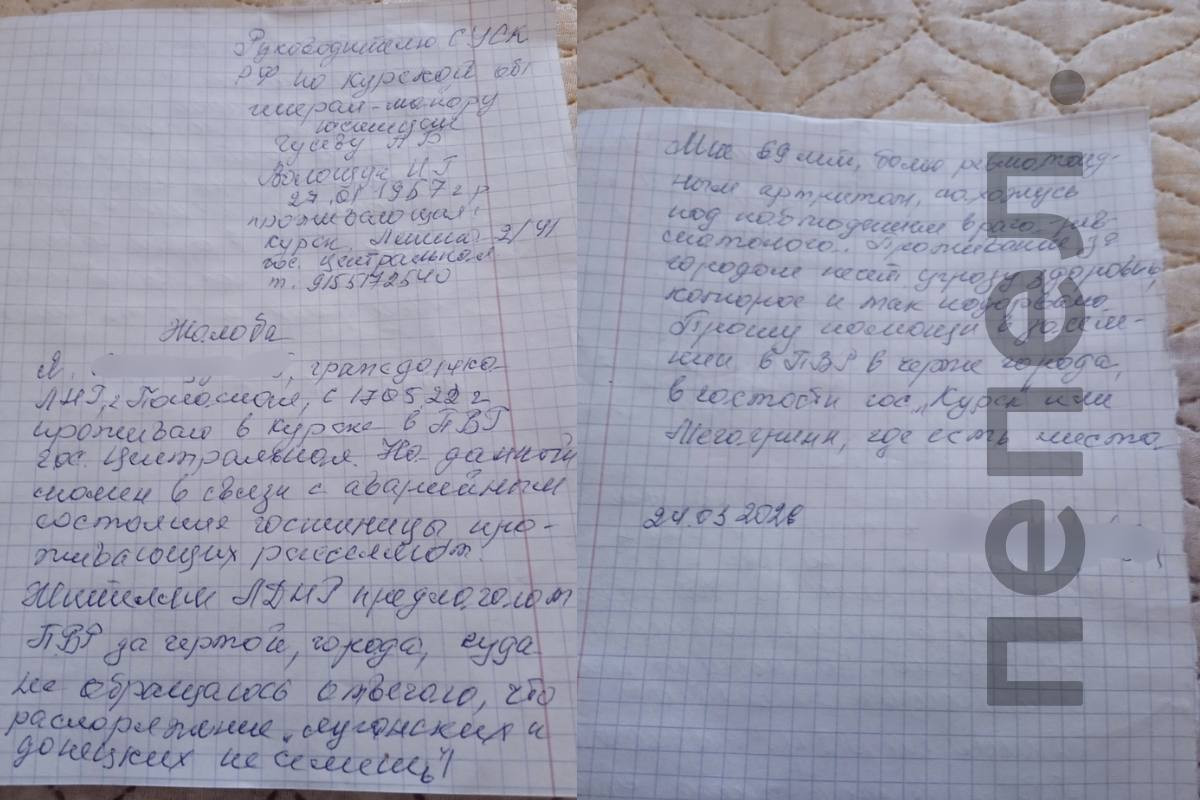 Руководителю СУСК
РФ по Курской обл
генерал-майору
юстиции
Гусеву А В
Волощук Н Г
27.01 1957 г р
проживающая:
Курск, 2/41
гос. Центральная
т. 9155172540
Жалоба
Я, , гражданка
ЛНР, г Попасная, с 17 05.22 г
проживаю в Курске в ПВР
гос. Центральная. На данный
момен в связи с аварийным
состояние гостиницы про-
живающих расселяют.
Жителям ЛДНР предлагают
ПВР за чертой, города, куда
не обращалось отвечали, что
распоряжение „луганских и
донецких не селить"!
Мне 69 лет, болею ревматоид-
ным артритом, нахожусь
под наблюдением врача-рев-
матолога. Проживание за
городом несет угрозу здоровью,
которое и так подорвано.
Прошу помощи в заселе-
нии в ПВР в черте города,
в частности гос. „Курск" или
Мегагринн, где есть места.
24.03 2026
пепел.